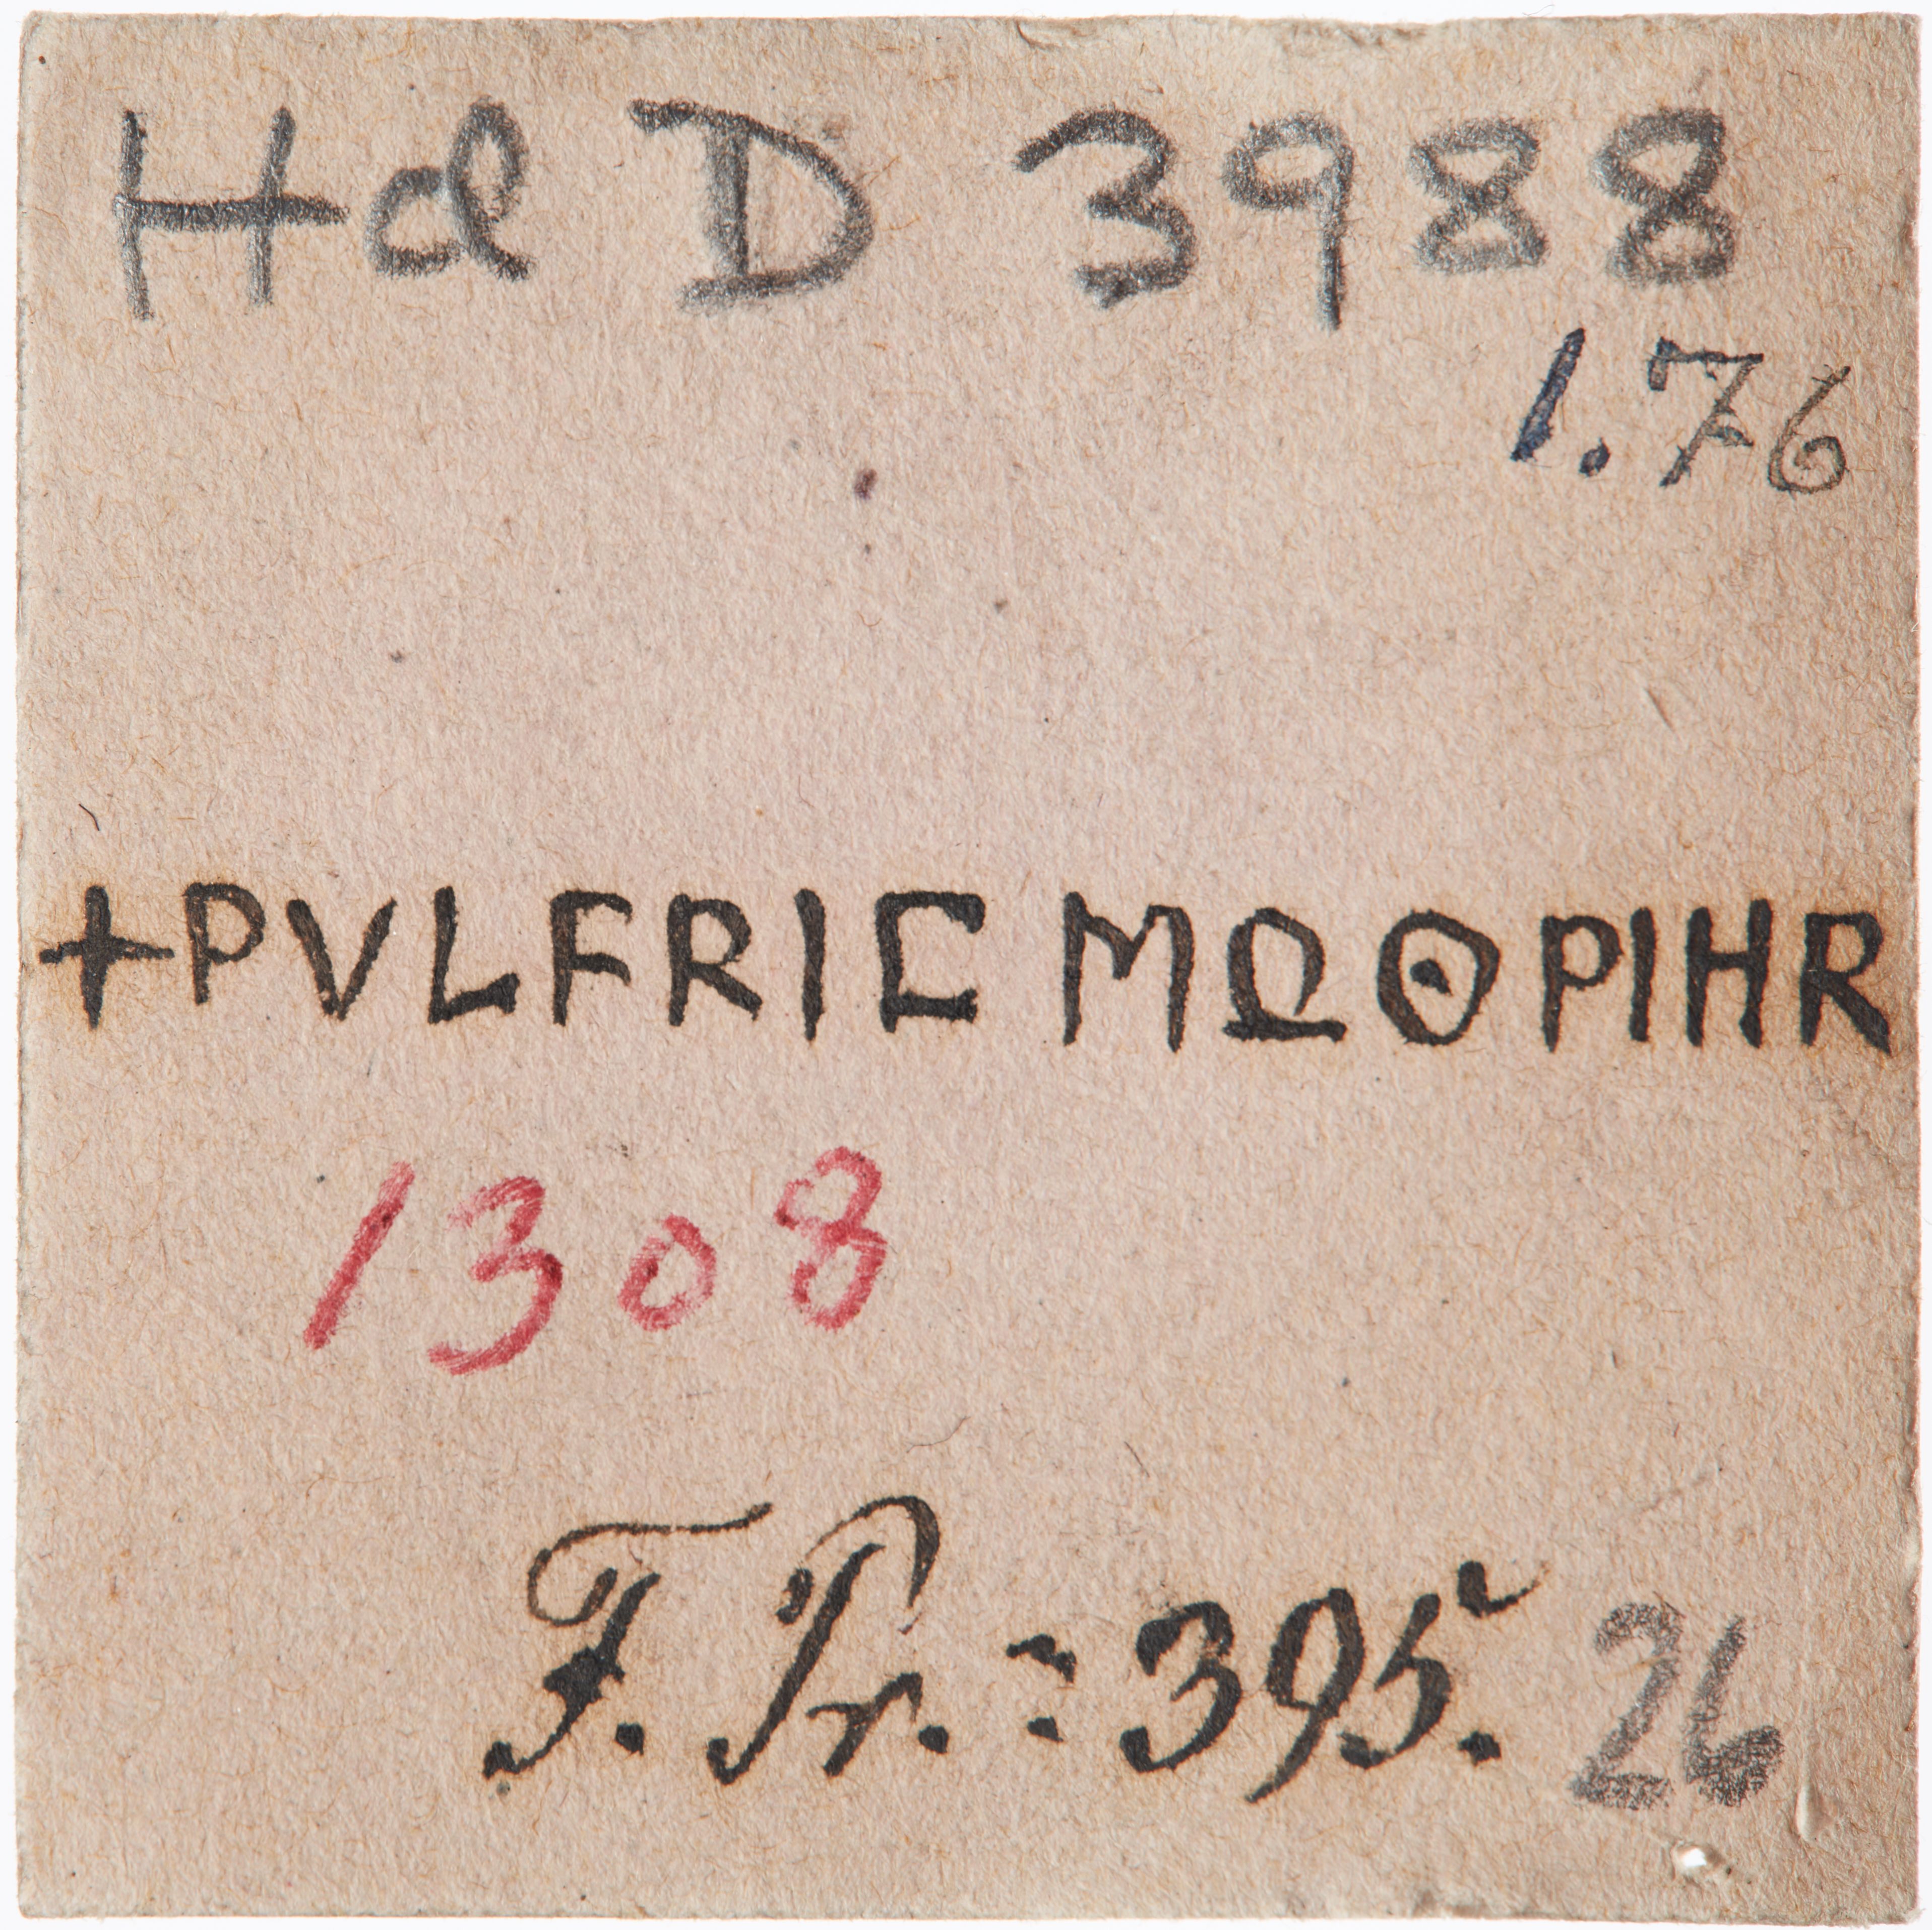 Hd D 3988
1.76
+PVLFRIC MΩʘPIHR
1308
F. Pr. : 395.
26